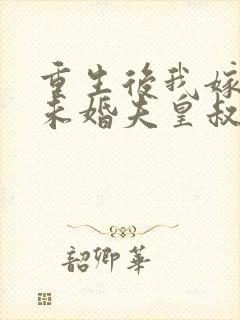 重生後我嫁
未婚夫皇叔
韶卿華